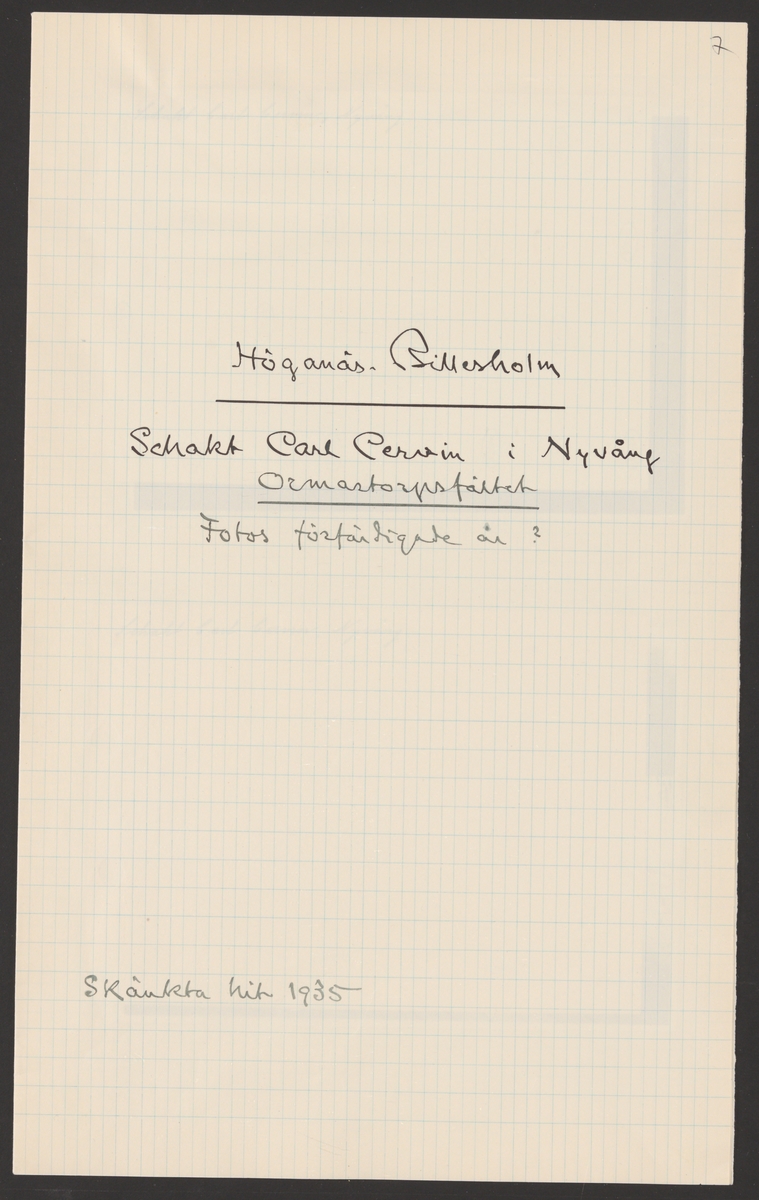 7
Höganäs-Billesholm
Schakt Carl Cervin i Nyvång
Ormastorpsfältet
Fotos förfärdigade år ?
Skänkta hit 1935